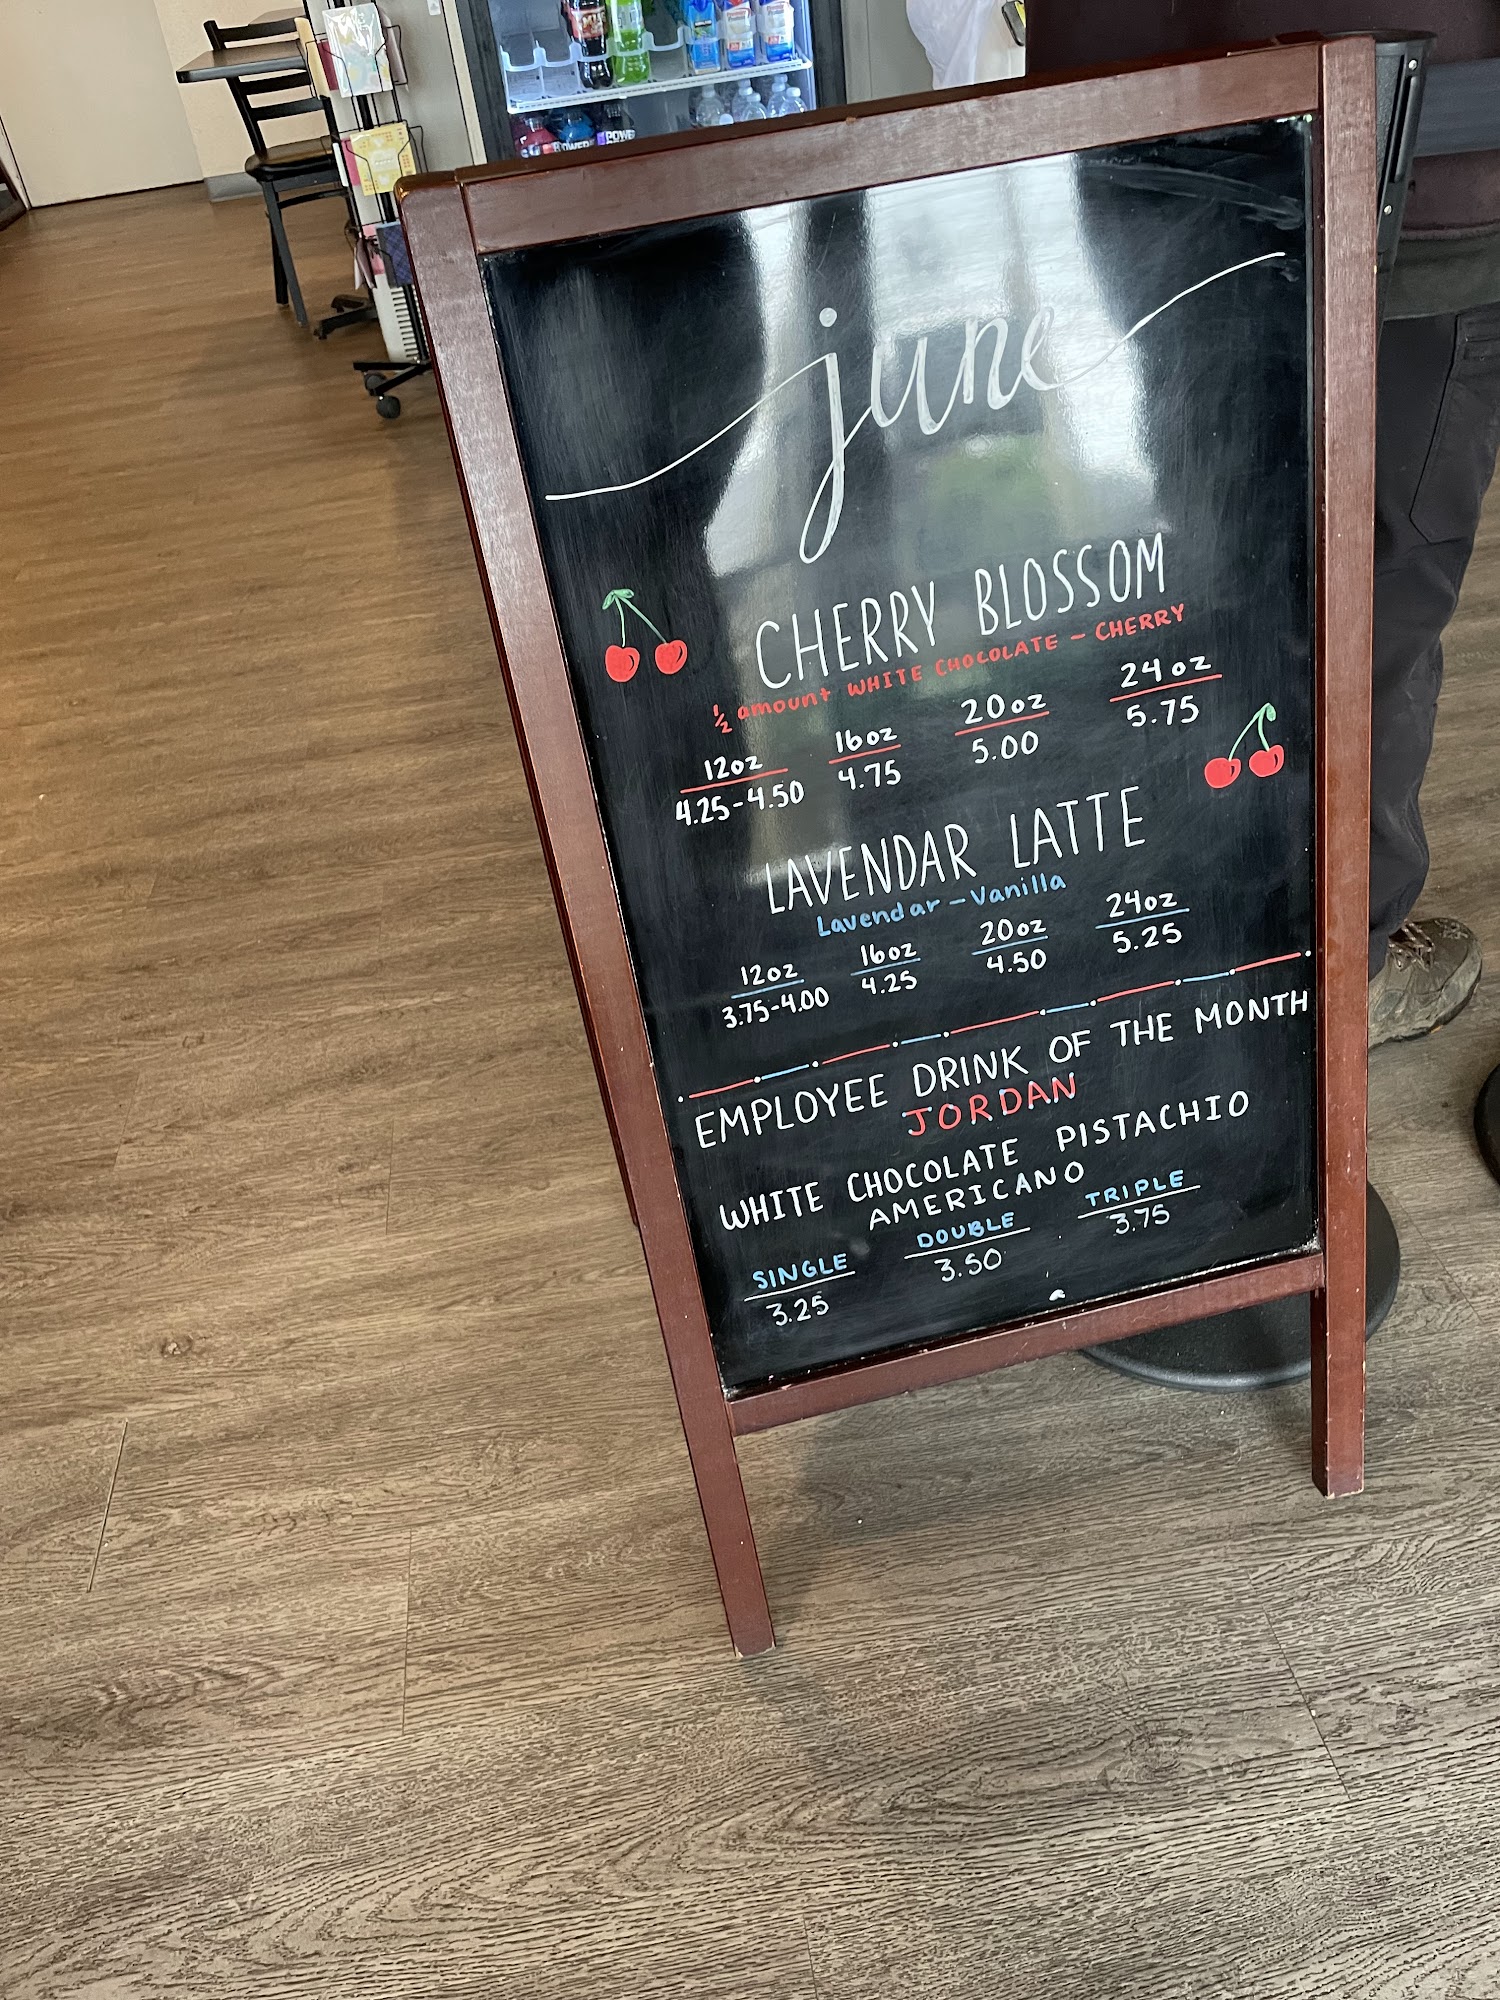 june
CHERRY BLOSSOM
½ amount WHITE CHOCOLATE - CHERRY
12oz 16oz 20oz 24oz
4.25-4.50 4.75 5.00 5.75
LAVENDAR LATTE
Lavendar - Vanilla
12oz 16oz 20oz 24oz
3.75-4.00 4.25 4.50 5.25
EMPLOYEE DRINK OF THE MONTH
JORDAN
WHITE CHOCOLATE PISTACHIO
AMERICANO
SINGLE DOUBLE TRIPLE
3.25 3.50 3.75